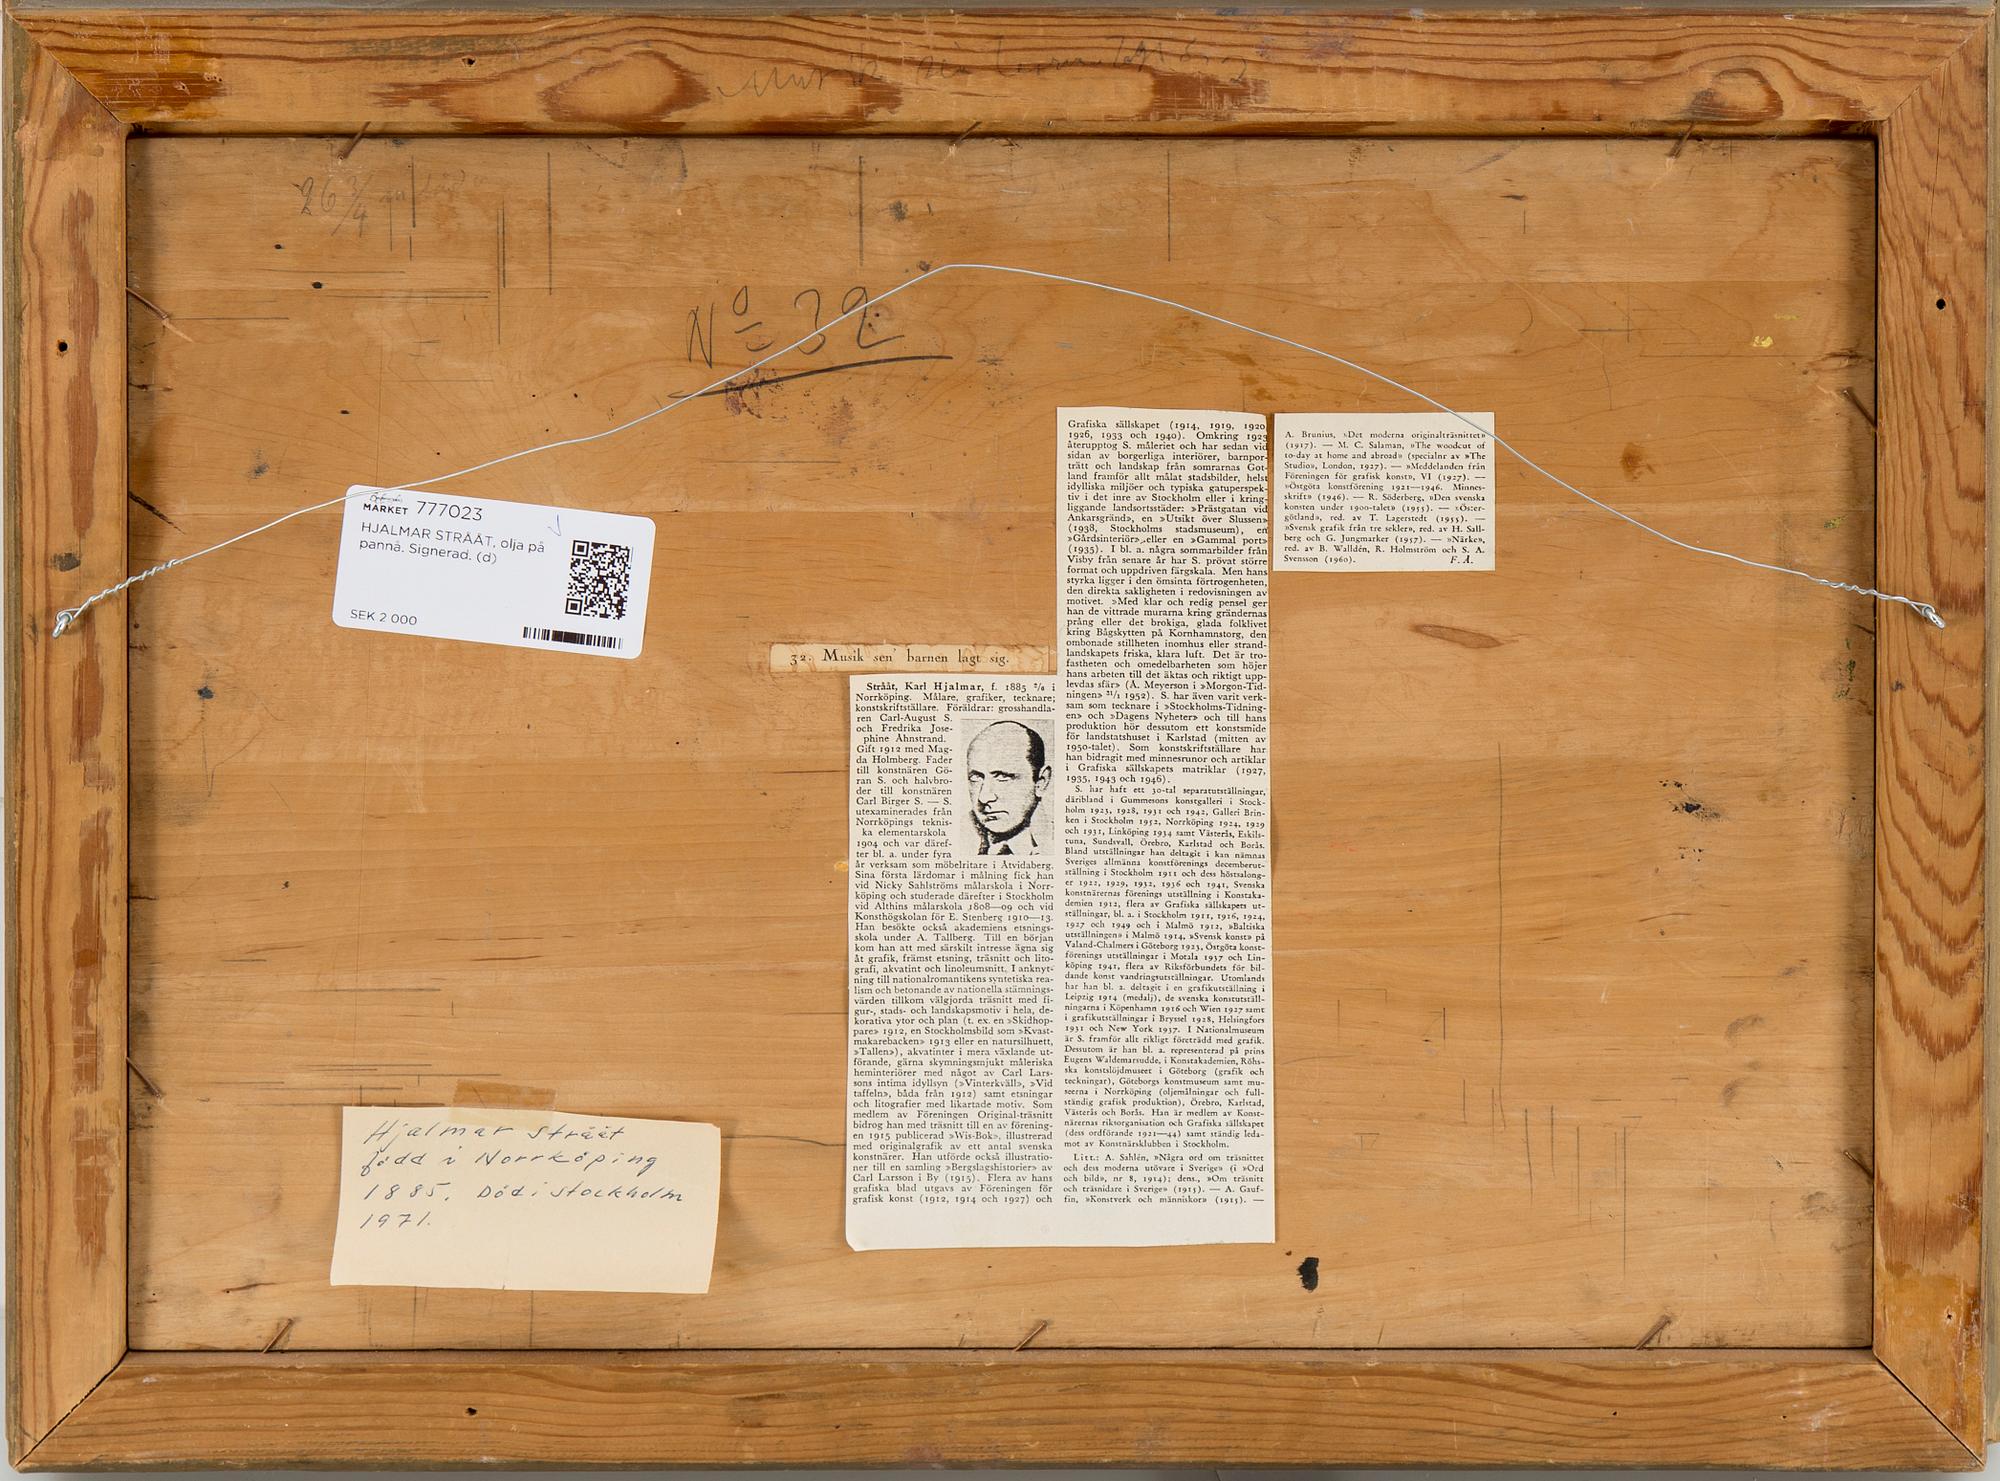 Musik sen barnen lagt sig
26 3/4
Nº 32
MARKET 777023
HJALMAR STRÅÅT, olja på
pannå. Signerad. (d)
SEK 2 000
32. Musik sen' barnen lagt sig.
Strååt, Karl Hjalmar, f. 1885 2/6 i
Norrköping. Målare, grafiker, tecknare;
konstskriftställare. Föräldrar: grosshandla-
ren Carl-August S.
och Fredrika Jose-
phine Åhnstrand.
Gift 1912 med Mag-
da Holmberg. Fader
till konstnären Gö-
ran S. och halvbro-
der till konstnären
Carl Birger S. — S.
utexaminerades från
Norrköpings teknis-
ka elementarskola
1904 och var däref-
ter bl. a. under fyra
år verksam som möbelritare i Åtvidaberg.
Sina första lärdomar i målning fick han
vid Nicky Sahlströms målarskola i Norr-
köping och studerade därefter i Stockholm
vid Althins målarskola 1808—09 och vid
Konsthögskolan för E. Stenberg 1910—13.
Han besökte också akademiens etsnings-
skola under A. Tallberg. Till en början
kom han att med särskilt intresse ägna sig
åt grafik, främst etsning, träsnitt och lito-
grafi, akvatint och linoleumsnitt. I anknyt-
ning till nationalromantikens syntetiska rea-
lism och betonande av nationella stämnings-
värden tillkom välgjorda träsnitt med fi-
gur-, stads- och landskapsmotiv i hela, de-
korativa ytor och plan (t. ex. en »Skidhop-
pare» 1912, en Stockholmsbild som »Kvast-
makarebacken» 1913 eller en natursilhuett,
»Tallen»), akvatinter i mera växlande ut-
förande, gärna skymningsmjukt måleriska
heminteriörer med något av Carl Lars-
sons intima idyllsyn (»Vinterkväll», »Vid
taffeln», båda från 1912) samt etsningar
och litografier med likartade motiv. Som
medlem av Föreningen Original-träsnitt
bidrog han med träsnitt till en av förening-
en 1915 publicerad »Wis-Bok», illustrerad
med originalgrafik av ett antal svenska
konstnärer. Han utförde också illustratio-
ner till en samling »Bergslagshistorier» av
Carl Larsson i By (1915). Flera av hans
grafiska blad utgavs av Föreningen för
grafisk konst (1912, 1914 och 1927) och
Grafiska sällskapet (1914, 1919, 1920,
1926, 1933 och 1940). Omkring 1923
återupptog S. måleriet och har sedan vid
sidan av borgerliga interiörer, barnpor-
trätt och landskap från somrarnas Got-
land framför allt målat stadsbilder, helst
idylliska miljöer och typiska gatuperspek-
tiv i det inre av Stockholm eller i kring-
liggande landsortsstäder: »Prästgatan vid
Ankarsgränd», en »Utsikt över Slussen»
(1938, Stockholms stadsmuseum), en
»Gårdsinteriör» eller en »Gammal port»
(1935). I bl. a. några sommarbilder från
Visby från senare år har S. prövat större
format och uppdriven färgskala. Men hans
styrka ligger i den ömsinta förtrogenheten,
den direkta sakligheten i redovisningen av
motivet. »Med klar och redig pensel ger
han de vittrade murarna kring grändernas
prång eller det brokiga, glada folklivet
kring Bågskytten på Kornhamnstorg, den
ombonade stillheten inomhus eller strand-
landskapets friska, klara luft. Det är tro-
fastheten och omedelbarheten som höjer
hans arbeten till det äktas och riktigt upp-
levdas sfär» (Å. Meyerson i »Morgon-Tid-
ningen» 31/1 1952). S. har även varit verk-
sam som tecknare i »Stockholms-Tidning-
en» och »Dagens Nyheter» och till hans
produktion hör dessutom ett konstsmide
för landstatshuset i Karlstad (mitten av
1950-talet). Som konstskriftställare har
han bidragit med minnesrunor och artiklar
i Grafiska sällskapets matriklar (1927,
1935, 1943 och 1946).
S. har haft ett 30-tal separatutställningar,
däribland i Gummesons konstgalleri i Stock-
holm 1923, 1928, 1931 och 1942, Galleri Brin-
ken i Stockholm 1952, Norrköping 1924, 1929
och 1931, Linköping 1934 samt Västerås, Eskils-
tuna, Sundsvall, Örebro, Karlstad och Borås.
Bland utställningar han deltagit i kan nämnas
Sveriges allmänna konstförenings decemberut-
ställning i Stockholm 1911 och dess höstsalong-
er 1922, 1929, 1932, 1936 och 1941, Svenska
konstnärernas förenings utställning i Konstaka-
demien 1912, flera av Grafiska sällskapets ut-
ställningar, bl. a. i Stockholm 1911, 1916, 1924,
1927 och 1949 och i Malmö 1912, »Baltiska
utställningen» i Malmö 1914, »Svensk konst» på
Valand-Chalmers i Göteborg 1923, Östgöta konst-
förenings utställningar i Motala 1937 och Lin-
köping 1941, flera av Riksförbundets för bil-
dande konst vandringsutställningar. Utomlands
har han bl. a. deltagit i en grafikutställning i
Leipzig 1914 (medalj), de svenska konstutställ-
ningarna i Köpenhamn 1916 och Wien 1927 samt
i grafikutställningar i Bryssel 1928, Helsingfors
1931 och New York 1937. I Nationalmuseum
är S. framför allt rikligt företrädd med grafik.
Dessutom är han bl. a. representerad på prins
Eugens Waldemarsudde, i Konstakademien, Röhs-
ska konstslöjdmuseet i Göteborg (grafik och
teckningar), Göteborgs konstmuseum samt mu-
seerna i Norrköping (oljemålningar och full-
ständig grafisk produktion), Örebro, Karlstad,
Västerås och Borås. Han är medlem av Konst-
närernas riksorganisation och Grafiska sällskapet
(dess ordförande 1921—44) samt ständig leda-
mot av Konstnärsklubben i Stockholm.
Litt.: A. Sahlén, »Några ord om träsnittet
och dess moderna utövare i Sverige» (i »Ord
och bild», nr 8, 1914); dens., »Om träsnitt
och träsnidare i Sverige» (1915). — A. Gauf-
fin, »Konstverk och människor» (1915). —
A. Brunius, »Det moderna originalträsnittet»
(1917). — M. C. Salaman, »The woodcut of
to-day at home and abroad» (specialnr av »The
Studio», London, 1927). — »Meddelanden från
Föreningen för grafisk konst», VI (1927). —
»Östgöta konstförening 1921—1946. Minnes-
skrift» (1946). — R. Söderberg, »Den svenska
konsten under 1900-talet» (1955). — »Öster-
götland», red. av T. Lagerstedt (1955). —
»Svensk grafik från tre sekler», red. av H. Sall-
berg och G. Jungmarker (1957). — »Närke»,
red. av B. Walldén, R. Holmström och S. A.
Svensson (1960). F. A.
Hjalmar Strååt
född i Norrköping
1885. Död i Stockholm
1971.